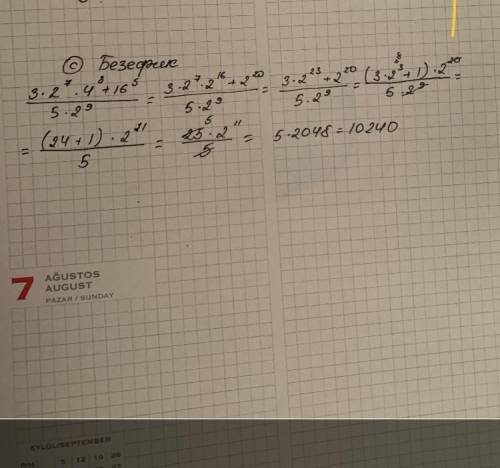 © Безефрик
3·2⁷·4⁸+16⁵ / 5·2⁹ = 3·2⁷·2¹⁶+2²⁰ / 5·2⁹ = 3·2²³+2²⁰ / 5·2⁹ = (3·2³+1)·2²⁰ / 5·2⁹ =
= (24+1)·2¹¹ / 5 = 25·2¹¹ / 5 = 5·2048=10240
7 AĞUSTOS
AUGUST
PAZAR / SUNDAY
EYLÜL/SEPTEMBER